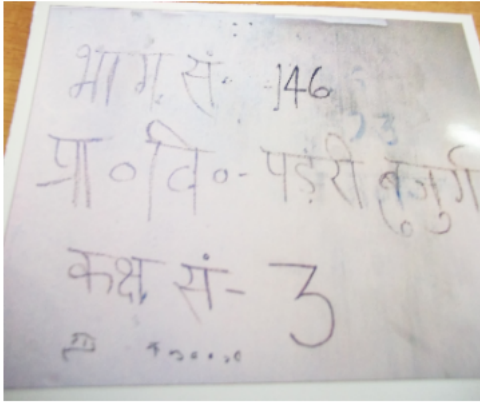 भाग सं. 146
प्रा०वि०- पड़री बुजुर्ग
कक्ष सं- 3